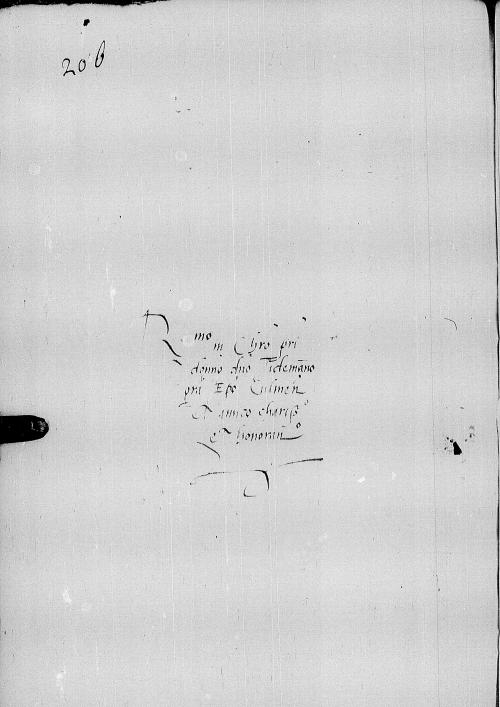 206
Rmo in Chro pri
domno dno Tidemano
Epo Culmen
et amico chariss
et honoran